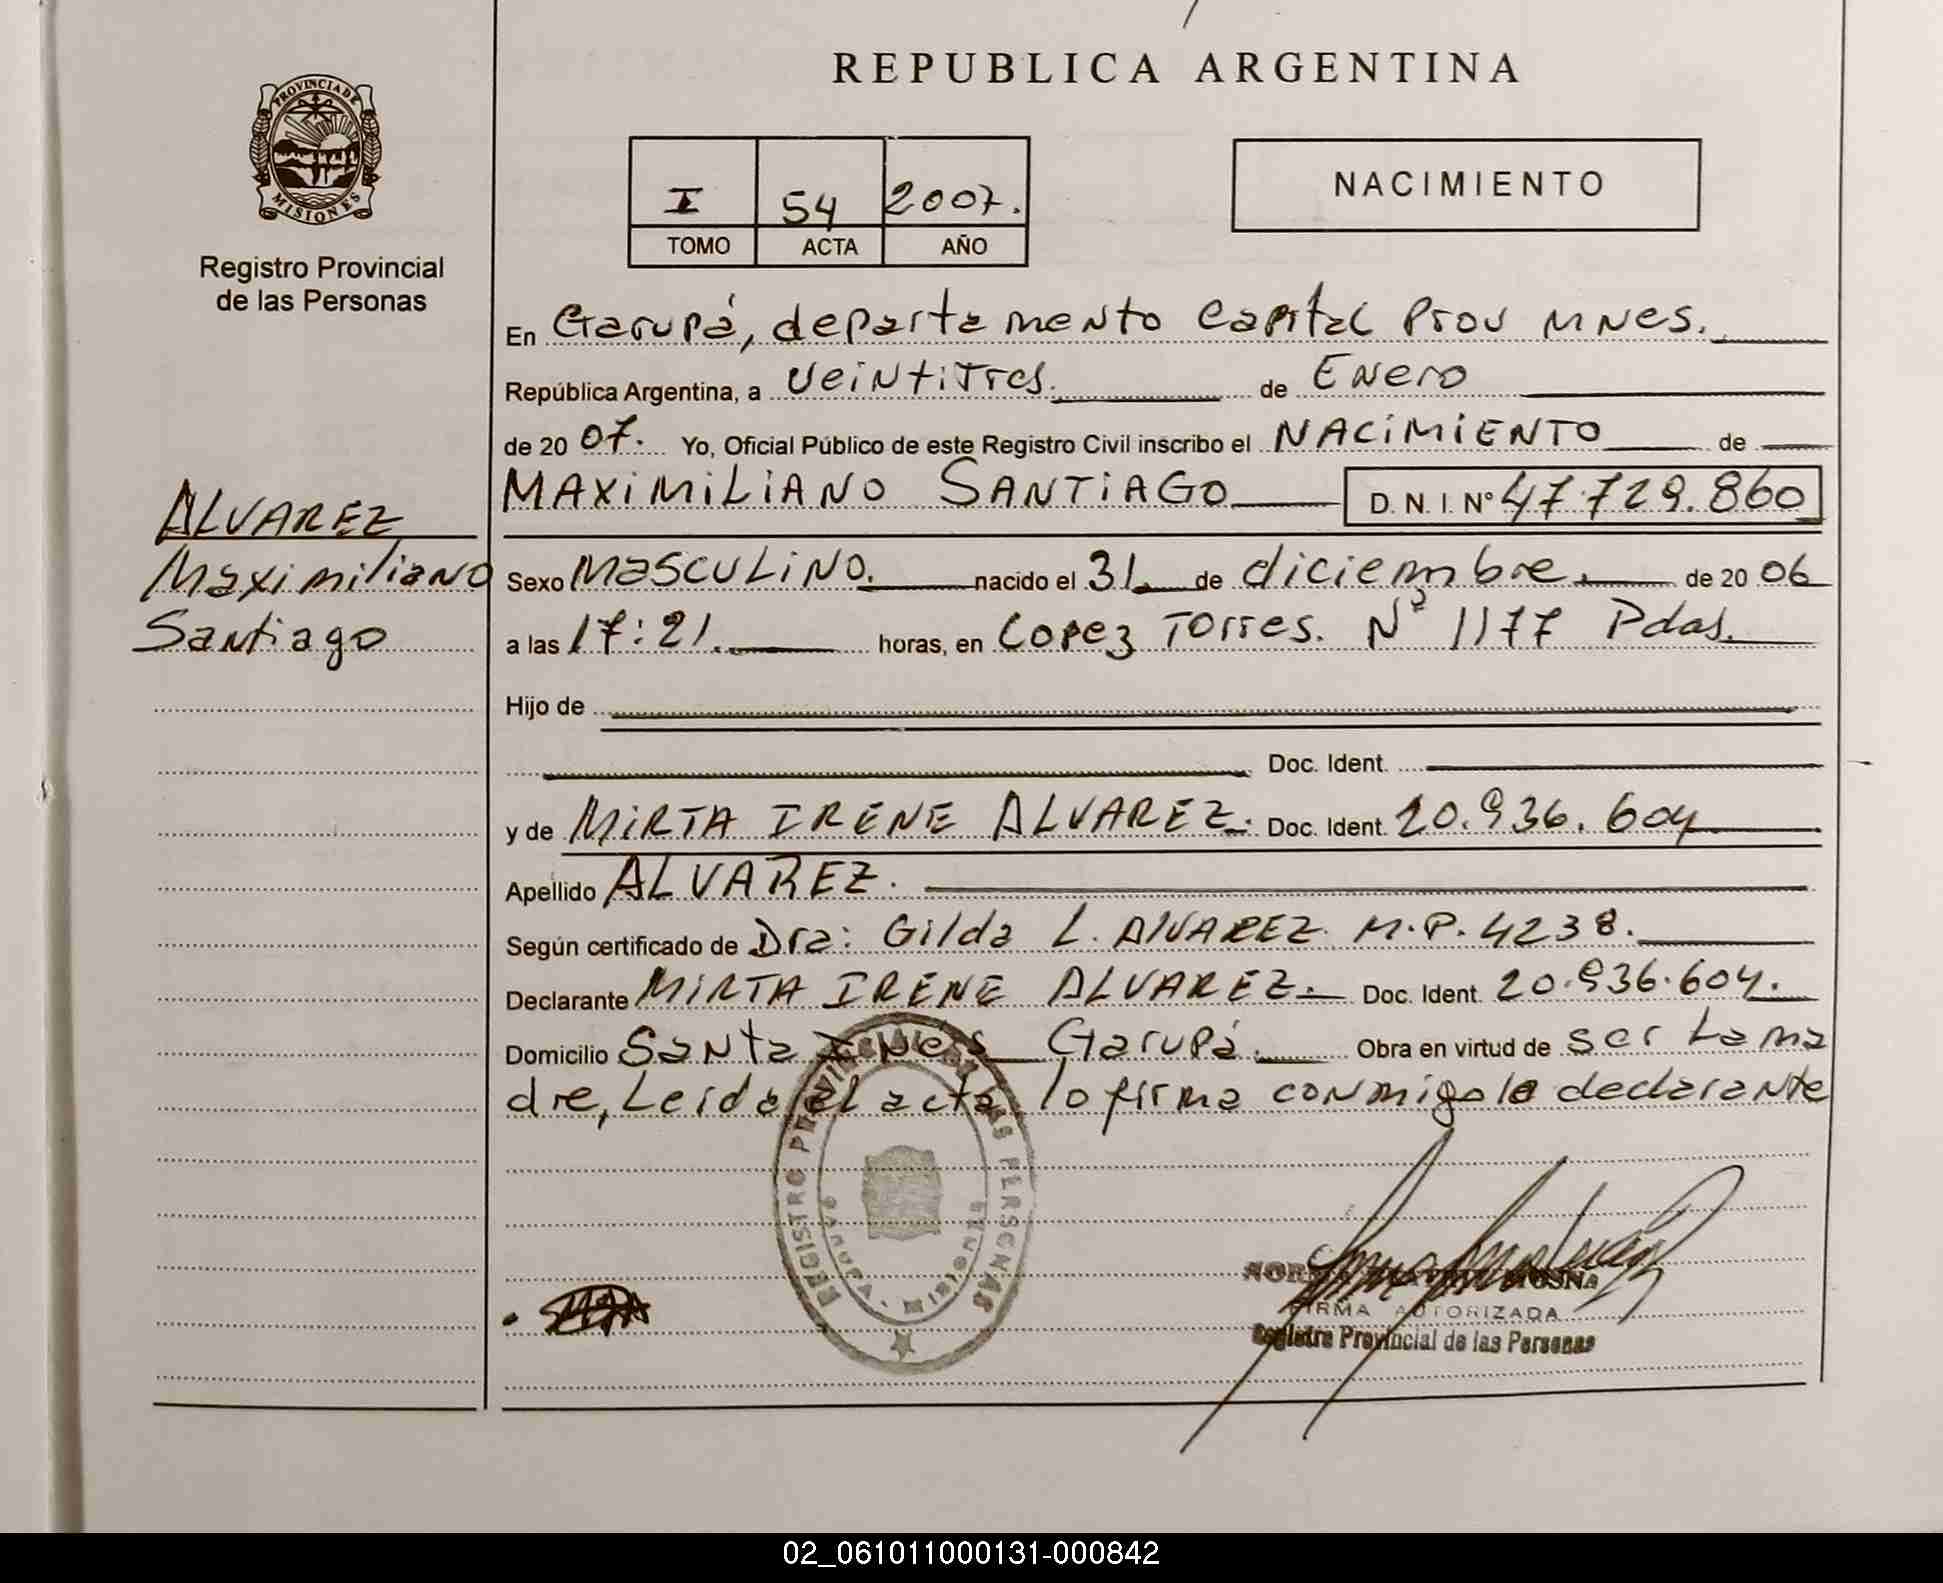 REPUBLICA ARGENTINA
PROVINCIA DE
MISIONES
Registro Provincial
de las Personas
I 54 2007.
TOMO ACTA AÑO
NACIMIENTO
En Garupá, departamento Capital Prov Mnes.
República Argentina, a veintitres. de Enero
de 20 07. Yo, Oficial Público de este Registro Civil inscribo el NACIMIENTO de
MAXIMILIANO SANTIAGO D. N. I. Nº 47.729.860
ALVAREZ
Maximiliano
Santiago
Sexo MASCULINO. nacido el 31 de diciembre. de 20 06
a las 17:21. horas, en Lopez Torres. Nº 1177 Pdas.
Hijo de
Doc. Ident.
y de MIRTA IRENE ALVAREZ. Doc. Ident. 20.936.604
Apellido ALVAREZ.
Según certificado de Dra: Gilda L. ALVAREZ M.P. 4238.
Declarante MIRTA IRENE ALVAREZ. Doc. Ident. 20.936.604.
Domicilio Santa Inés Garupá. Obra en virtud de ser La ma
dre, Leida el acta lo firma conmigo la declarante
REGISTRO PROVINCIAL DE LAS PERSONAS
MISIONES
FIRMA AUTORIZADA
Registro Provincial de las Personas
02_061011000131-000842